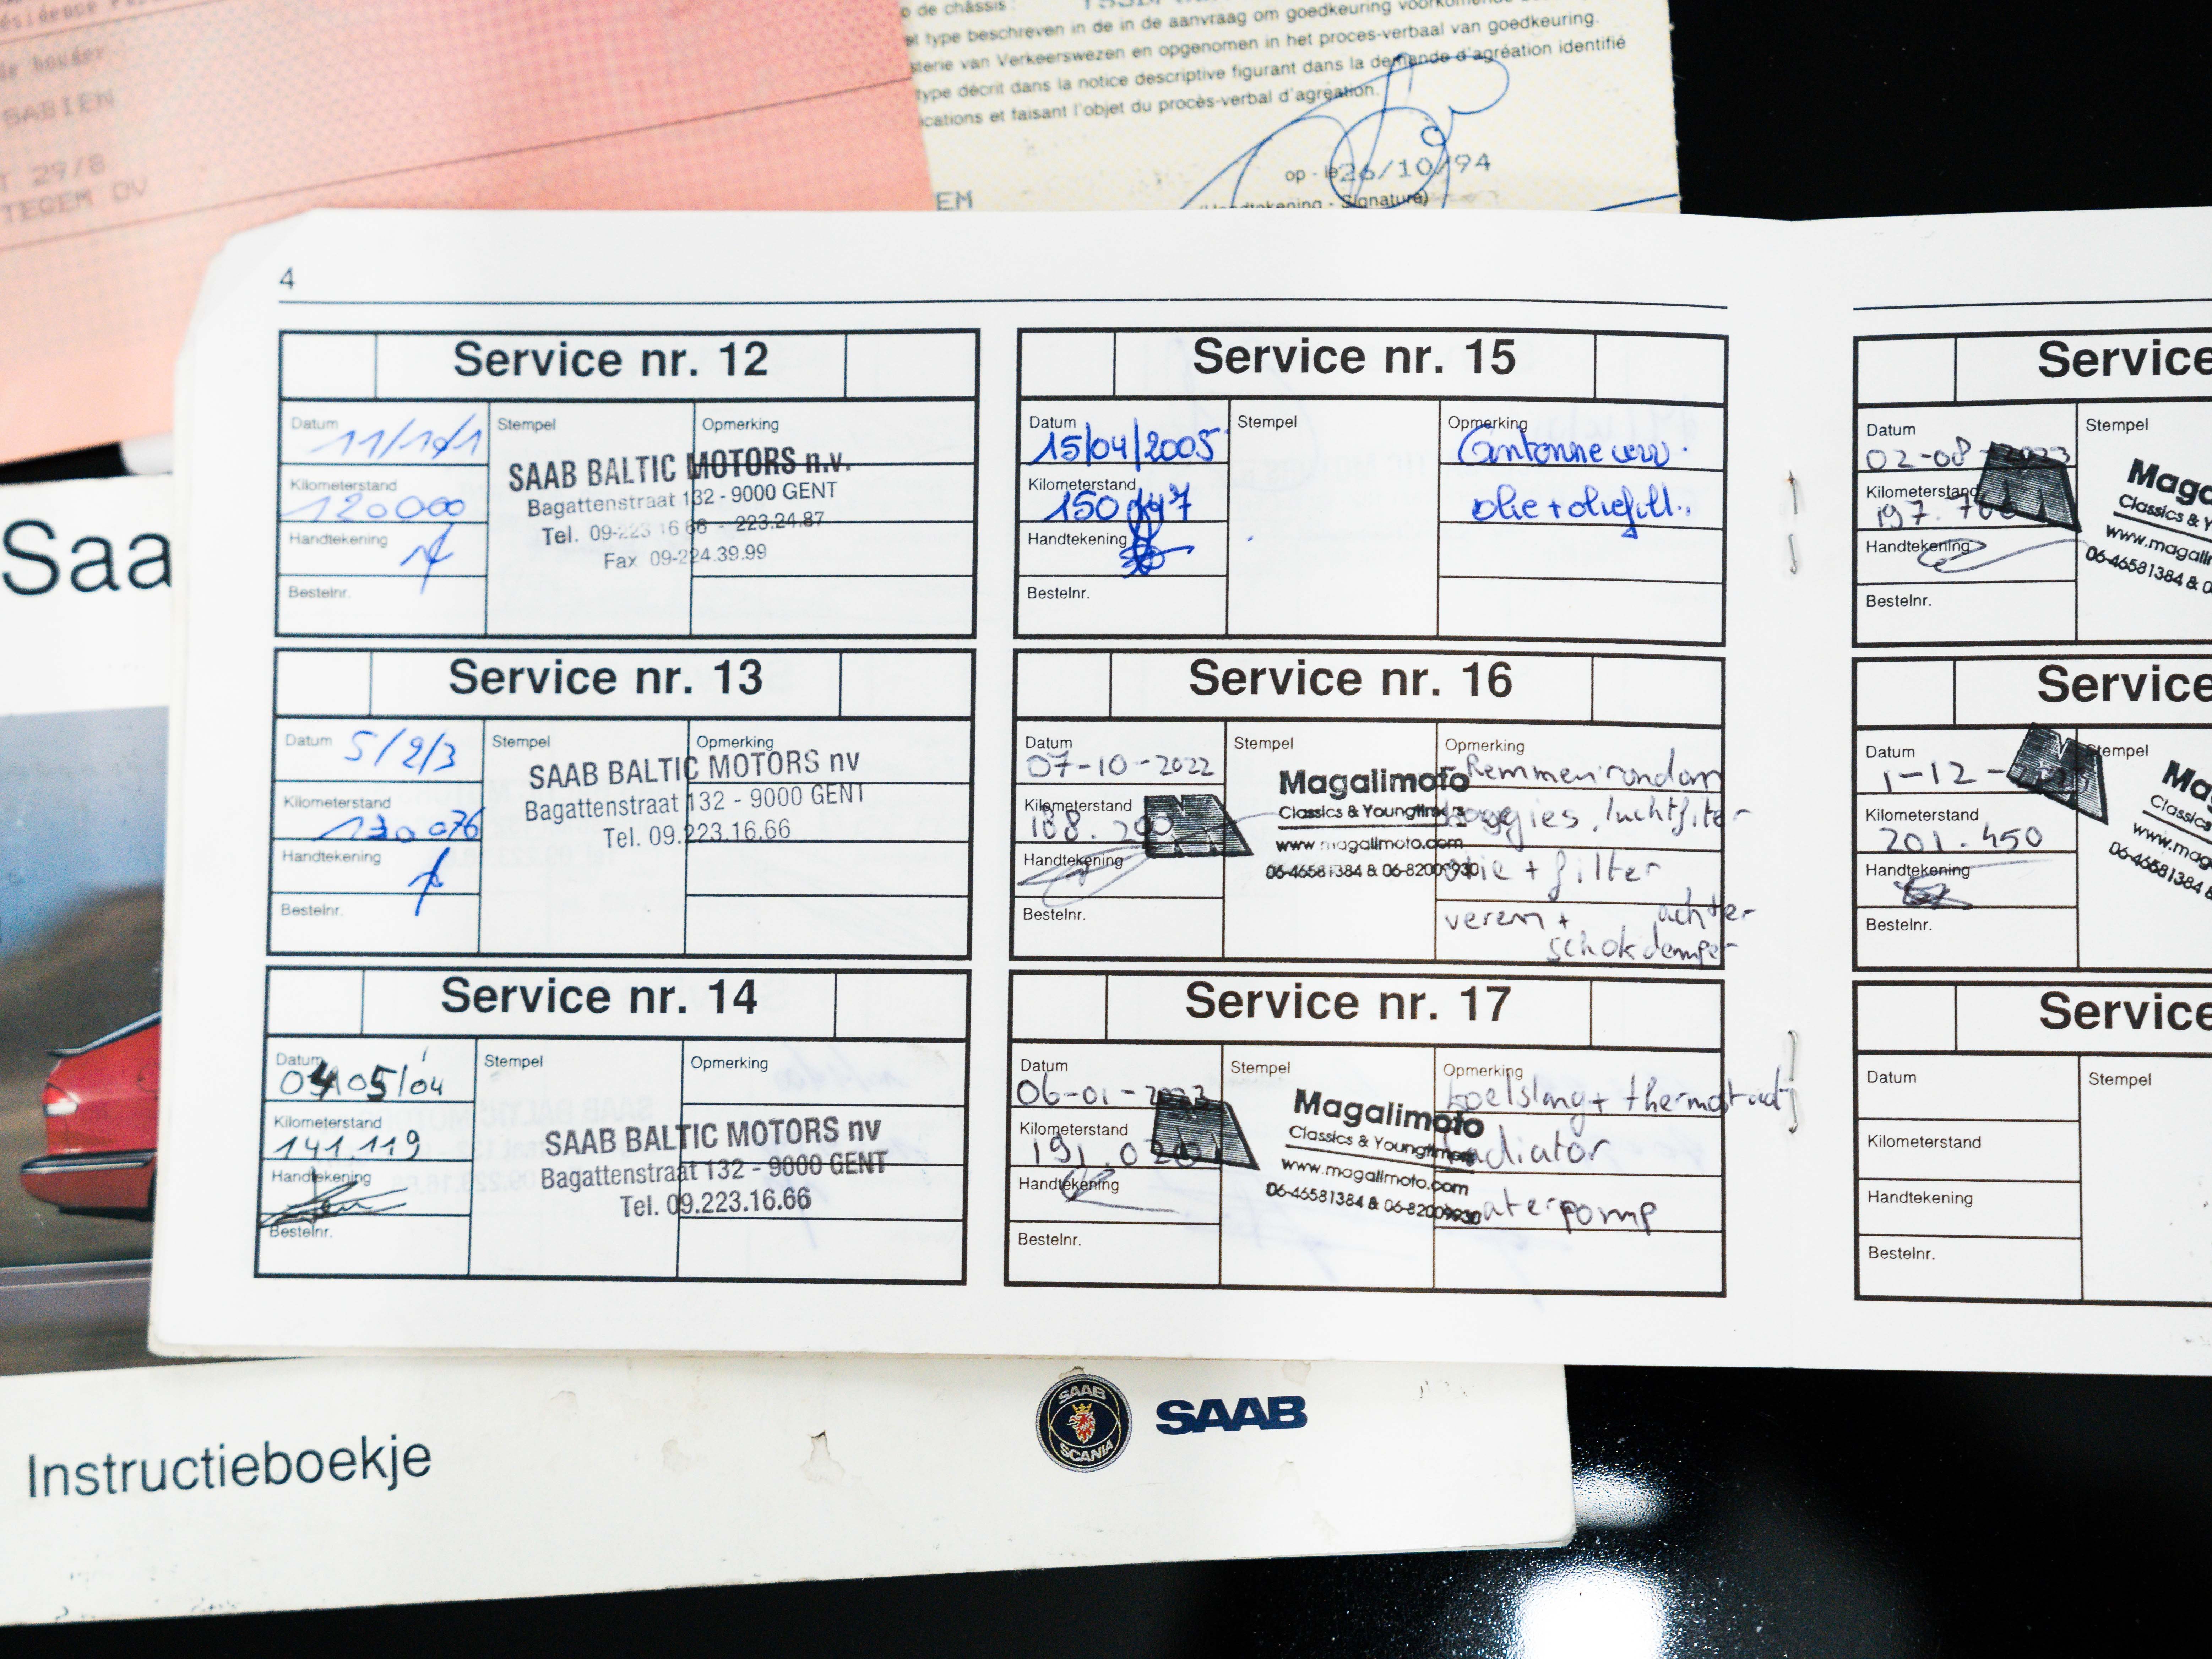 de châssis :
type beschreven in de in de aanvraag om goedkeuring
van Verkeerswezen en opgenomen in het proces-verbaal van goedkeuring.
type décrit dans la notice descriptive figurant dans la demande d'agréation identifié
et faisant l'objet du procès-verbal d'agréation.
SABIEN
29/8
TEGEM OV
EM
op - le 26/10/94
Signature)
4
Service nr. 12
Datum
Stempel
Opmerking
Kilometerstand 120000
Handtekening
Bestelnr.
SAAB BALTIC MOTORS n.v.
Bagattenstraat 132 - 9000 GENT
Tel. 09-223 16 66 - 223.24.87
Fax 09-224.39.99
Service nr. 13
Datum 5/2/3
Stempel
Opmerking
Kilometerstand 130076
Handtekening
Bestelnr.
SAAB BALTIC MOTORS nv
Bagattenstraat 132 - 9000 GENT
Tel. 09.223.16.66
Service nr. 14
Datum 04/05/04
Stempel
Opmerking
Kilometerstand 141.119
Handtekening
Bestelnr.
SAAB BALTIC MOTORS nv
Bagattenstraat 132 - 9000 GENT
Tel. 09.223.16.66
Service nr. 15
Datum 15/04/2005
Stempel
Opmerking
Kilometerstand
olie + oliefilt.
Handtekening
Bestelnr.
Service nr. 16
Datum 07-10-2022
Stempel
Opmerking
Remmen rondom
Kilometerstand
luchtfilter
Handtekening
olie + filter
Bestelnr.
veren + achter
schokdemper
Magalimoto
Classics & Youngtimers
www.magalimoto.com
06-46581384 & 06-82009930
Service nr. 17
Datum 06-01-2023
Stempel
Opmerking
koelslang + thermostaat
Kilometerstand
radiator
Handtekening
waterpomp
Bestelnr.
Magalimoto
Classics & Youngtimers
www.magalimoto.com
06-46581384 & 06-82009930
Service
Datum 02-08-2023
Stempel
Kilometerstand
Handtekening
Bestelnr.
Maga
Classics & Y
www.magali
06-46581384 & 0
Service
Datum 1-12-
Stempel
Kilometerstand 201.450
Handtekening
Bestelnr.
Ma
Classics
www.mag
06-46581384 &
Service
Datum
Stempel
Kilometerstand
Handtekening
Bestelnr.
Saa
Instructieboekje
SAAB
SCANIA
SAAB